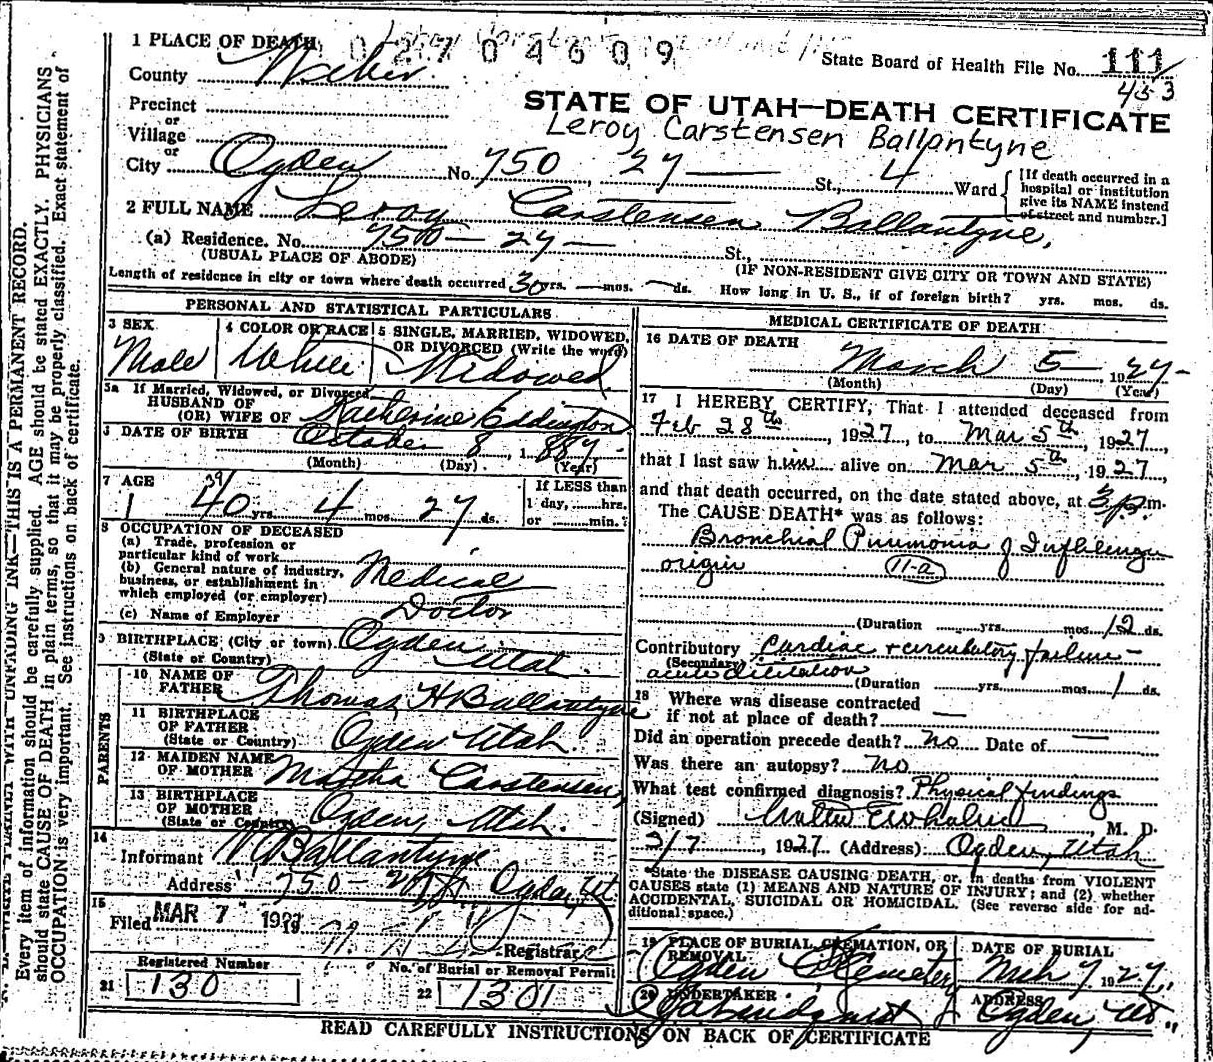 1 PLACE OF DEATH
0 2 7 0 4 6 0 9
State Board of Health File No. 111
453
County Weber
STATE OF UTAH—DEATH CERTIFICATE
Precinct
or
Village
Leroy Carstensen Ballantyne
or
City Ogden No. 750 27 St., 4 Ward
[If death occurred in a hospital or institution give its NAME instead of street and number.]
2 FULL NAME Leroy Carstensen Ballantyne,
(a) Residence. No. 750 — 27 — St.,
(USUAL PLACE OF ABODE)
(IF NON-RESIDENT GIVE CITY OR TOWN AND STATE)
Length of residence in city or town where death occurred 30 yrs. — mos. — ds. How long in U. S., if of foreign birth? yrs. mos. ds.
PERSONAL AND STATISTICAL PARTICULARS
3 SEX
Male
4 COLOR OR RACE
White
5 SINGLE, MARRIED, WIDOWED, OR DIVORCED (Write the word)
Widowed
5a If Married, Widowed, or Divorced
HUSBAND OF
(OR) WIFE OF Katherine Eddington
DATE OF BIRTH October 8, 1887
(Month) (Day) (Year)
7 AGE
39
40 yrs. 4 mos. 27 ds.
If LESS than
1 day, hrs.
or min.?
8 OCCUPATION OF DECEASED
(a) Trade, profession or
particular kind of work
(b) General nature of industry,
business, or establishment in
which employed (or employer)
Medical
Doctor
(c) Name of Employer
9 BIRTHPLACE (City or town) Ogden
(State or Country) Utah.
PARENTS
10 NAME OF
FATHER Thomas H Ballantyne
11 BIRTHPLACE
OF FATHER
(State or Country) Ogden Utah.
12 MAIDEN NAME
OF MOTHER Martha Carstensen,
13 BIRTHPLACE
OF MOTHER
(State or Country) Ogden, Utah.
14
Informant Ballantyne
Address 750 Ogden, Ut.
15
Filed MAR 7 1927
Registrar
Registered Number
21 130
No. of Burial or Removal Permit
22 1301
MEDICAL CERTIFICATE OF DEATH
16 DATE OF DEATH
March 5 — , 1927 -
(Month) (Day) (Year)
17 I HEREBY CERTIFY, That I attended deceased from
Feb 28th, 1927, to Mar 5th, 1927,
that I last saw him alive on Mar 5th, 1927,
and that death occurred, on the date stated above, at 3 p.m.
The CAUSE DEATH* was as follows:
Bronchial Pneumonia of Influenza
origin 11-a
(Duration yrs. mos. 12 ds.
Contributory Cardiac + circulatory failure —
(Secondary) acute dilatation
(Duration yrs. mos. 1 ds.
18 Where was disease contracted
if not at place of death? —
Did an operation precede death? no Date of —
Was there an autopsy? no
What test confirmed diagnosis? Physical findings
(Signed) Walter E Whalen, M. D.
3/7, 1927 (Address) Ogden, Utah
*State the DISEASE CAUSING DEATH, or, in deaths from VIOLENT
CAUSES state (1) MEANS AND NATURE OF INJURY; and (2) whether
ACCIDENTAL, SUICIDAL OR HOMICIDAL. (See reverse side for additional space.)
19 PLACE OF BURIAL, CREMATION, OR
REMOVAL
Ogden Cemetery
DATE OF BURIAL
Mch 7, 1927,
20 UNDERTAKER
Lindquist
ADDRESS
Ogden, Ut.
READ CAREFULLY INSTRUCTIONS ON BACK OF CERTIFICATE
N. B.—WRITE PLAINLY WITH UNFADING INK—THIS IS A PERMANENT RECORD.
Every item of information should be carefully supplied. AGE should be stated EXACTLY. PHYSICIANS
should state CAUSE OF DEATH in plain terms, so that it may be properly classified. Exact statement of
OCCUPATION is very important. See instructions on back of certificate.